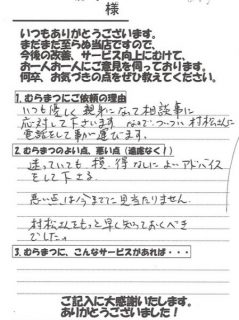 様
いつもありがとうございます。
まだまだ至らぬ当店ですので、
今後の改善、サービス向上にむけて、
お一人お一人にご意見を伺っております。
何卒、お気づきの点をぜひ教えてください。
1. むらまつにご依頼の理由
いつも優しく親身になって相談事に
応対して下さいます なので、ついつい村松さんに
電話をして事が運びます。
2. むらまつのよい点、悪い点（遠慮なく！）
迷っていても 損、得なしに よいアドバイス
をして下さる。
悪い点は今までに見当たりません。
村松さんをもっと早く知っておくべき
でした。
3. むらまつに、こんなサービスがあれば・・・
ご記入に大感謝いたします。
ありがとうございました！